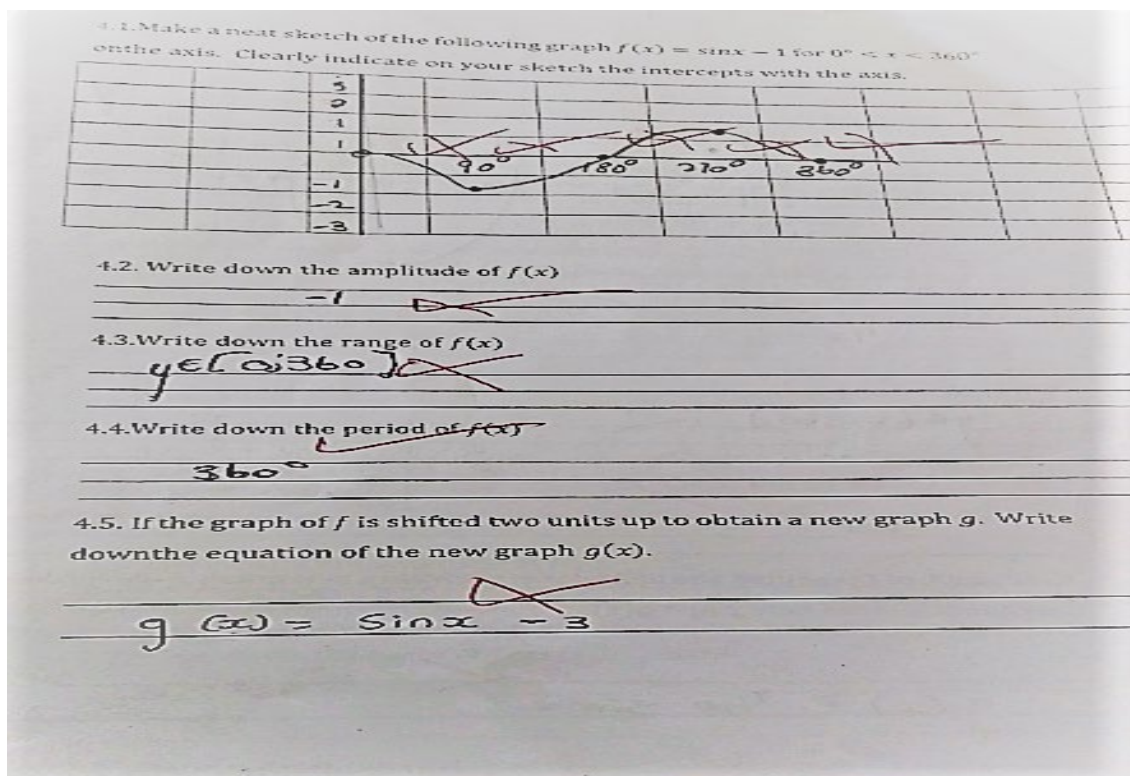 4.1.Make a neat sketch of the following graph f(x) = sinx − 1 for 0° < x < 360°
onthe axis. Clearly indicate on your sketch the intercepts with the axis.
3
2
1
1
90° 180° 270° 360°
-1
-2
-3
4.2. Write down the amplitude of f(x)
-1
4.3.Write down the range of f(x)
y∈[0;360]
4.4.Write down the period of f(x)
360°
4.5. If the graph of f is shifted two units up to obtain a new graph g. Write
downthe equation of the new graph g(x).
g (x) = Sinx - 3